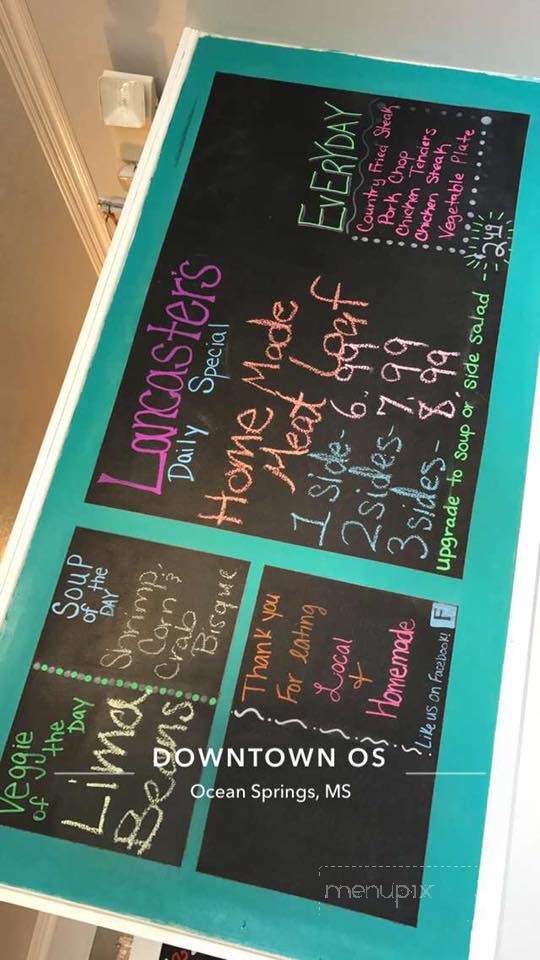 Veggie
of the
Day
Lima
Beans
Soup
of the
DAY
Shrimp,
Corn &
Crab
Bisque
Thank you
For eating
Local
+
Homemade
Like us on Facebook! F
Lancaster's
Daily Special
Home Made
Meat Loaf
1 side- 6.99
2 sides- 7.99
3 sides- 8.99
upgrade to soup or side salad -- 2.49
EVERYDAY
Country Fried Steak
Pork Chop
Chicken Tenders
Chicken Steak
Vegetable Plate
DOWNTOWN OS
Ocean Springs, MS
menupix